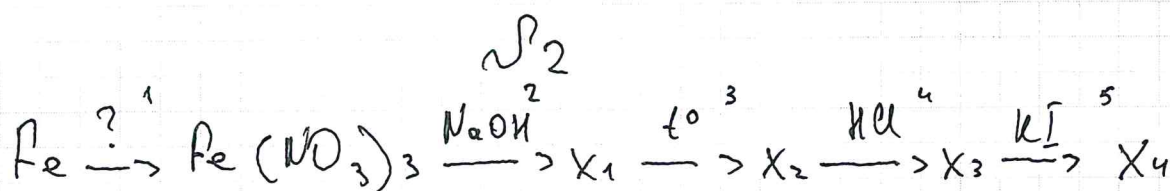 №2
Fe —?¹→ Fe(NO₃)₃ —NaOH²→ X₁ —t°³→ X₂ —HCl⁴→ X₃ —KI⁵→ X₄